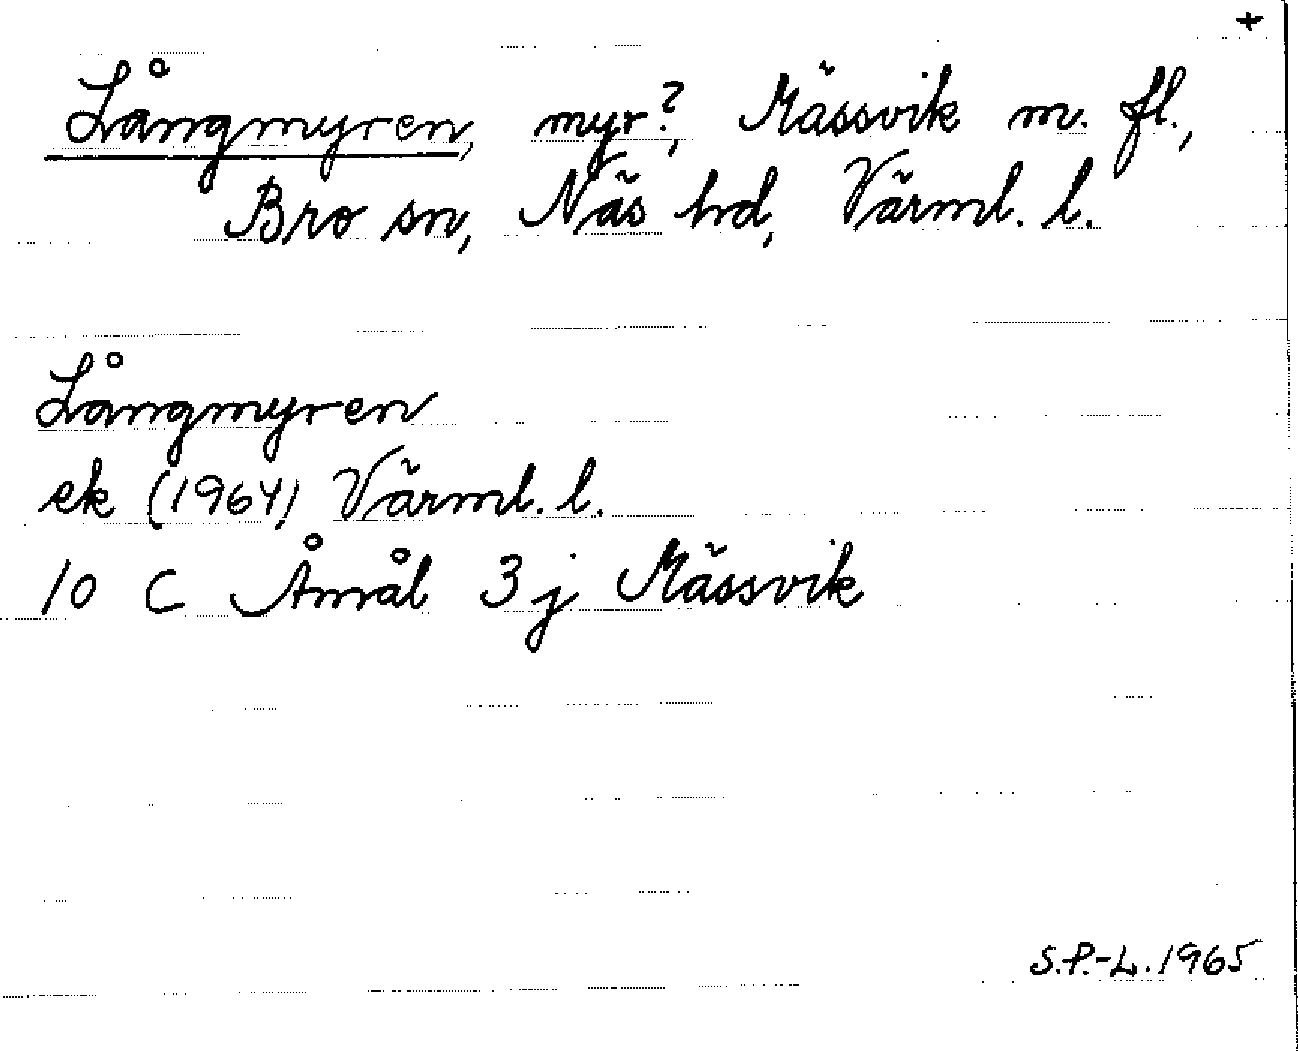 +
Långmyren, myr?, Mässvik m. fl.,
Bro sn, Näs hd, Värml. l.
Långmyren
ek (1964) Värml. l.
10 C Åmål 3j Mässvik
S.P.-L. 1965